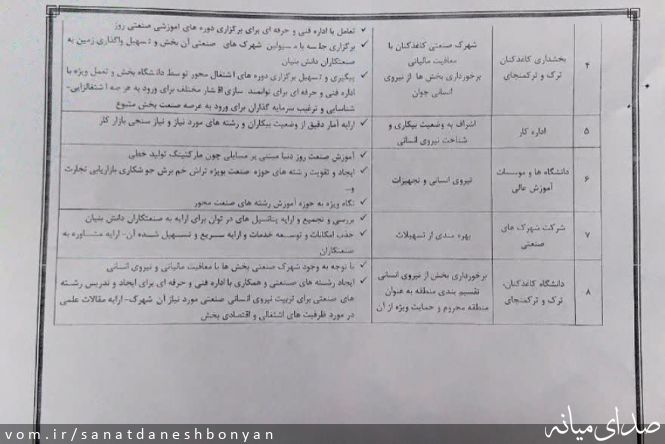 ۴
بخشداری کاغذکنان
ترک و ترکمنچای
شهرک صنعتی کاغذکنان با
معافیت مالیاتی
برخورداری بخش ها از نیروی
انسانی جوان
تعامل با اداره فنی و حرفه ای برای برگزاری دوره های آموزشی صنعتی روز
برگزاری جلسه با مسولین شهرک های صنعتی آن بخش و تسهیل واگذاری زمین به
صنعتکاران دانش بنیان
پیگیری و تسهیل برگزاری دوره های اشتغال محور توسط دانشگاه بخش و تعمل ویژه با
اداره فنی و حرفه ای برای توانمند سازی اقشار مختلف برای ورود به عرصه اشتغالزایی-
شناسایی و ترغیب سرمایه گذاران برای ورود به عرصه صنعت بخش متبوع
۵
اداره کار
اشراف به وضعیت بیکاری و
شناخت نیروی انسانی
ارایه آمار دقیق از وضعیت بیکاران و رشته های مورد نیاز و نیاز سنجی بازار کار
۶
دانشگاه ها و موسسات
آموزش عالی
نیروی انسانی و تجهیزات
آموزش صنعت روز دنیا مبتنی بر مسایلی چون مارکتینگ تولید خطی
ایجاد و تقویت رشته های حوزه صنعت بویژه تراش خم برش جوشکاری بازاریابی تجارت
و..
نگاه ویژه به حوزه آموزش رشته های صنعت محور
۷
شرکت شهرک های
صنعتی
بهره مندی از تسهیلات
بررسی و تجمیع و ارایه پتانسیل های در توان برای ارایه به صنعتکاران دانش بنیان
جذب امکانات و توسعه خدمات و ارایه سریع و تسهیل شده آن- ارایه مشاوره به
صنعتکاران
۸
دانشگاه کاغذکنان،
ترک و ترکمنچای
برخورداری بخش از نیروی انسانی
تقسیم بندی منطقه به عنوان
منطقه محروم و حمایت ویژه از آن
با توجه به وجود شهرک صنعتی بخش ها با معافیت مالیاتی و نیروی انسانی
ایجاد رشته های صنعتی و همکاری با اداره فنی و حرفه ای برای ایجاد و تدریس رشته
های صنعتی برای تربیت نیروی انسانی صنعتی مورد نیاز آن شهرک- ارایه مقالات علمی
در مورد ظرفیت های اشتغالی و اقتصادی بخش
صدای میانه
vom.ir/sanatdaneshbonyan